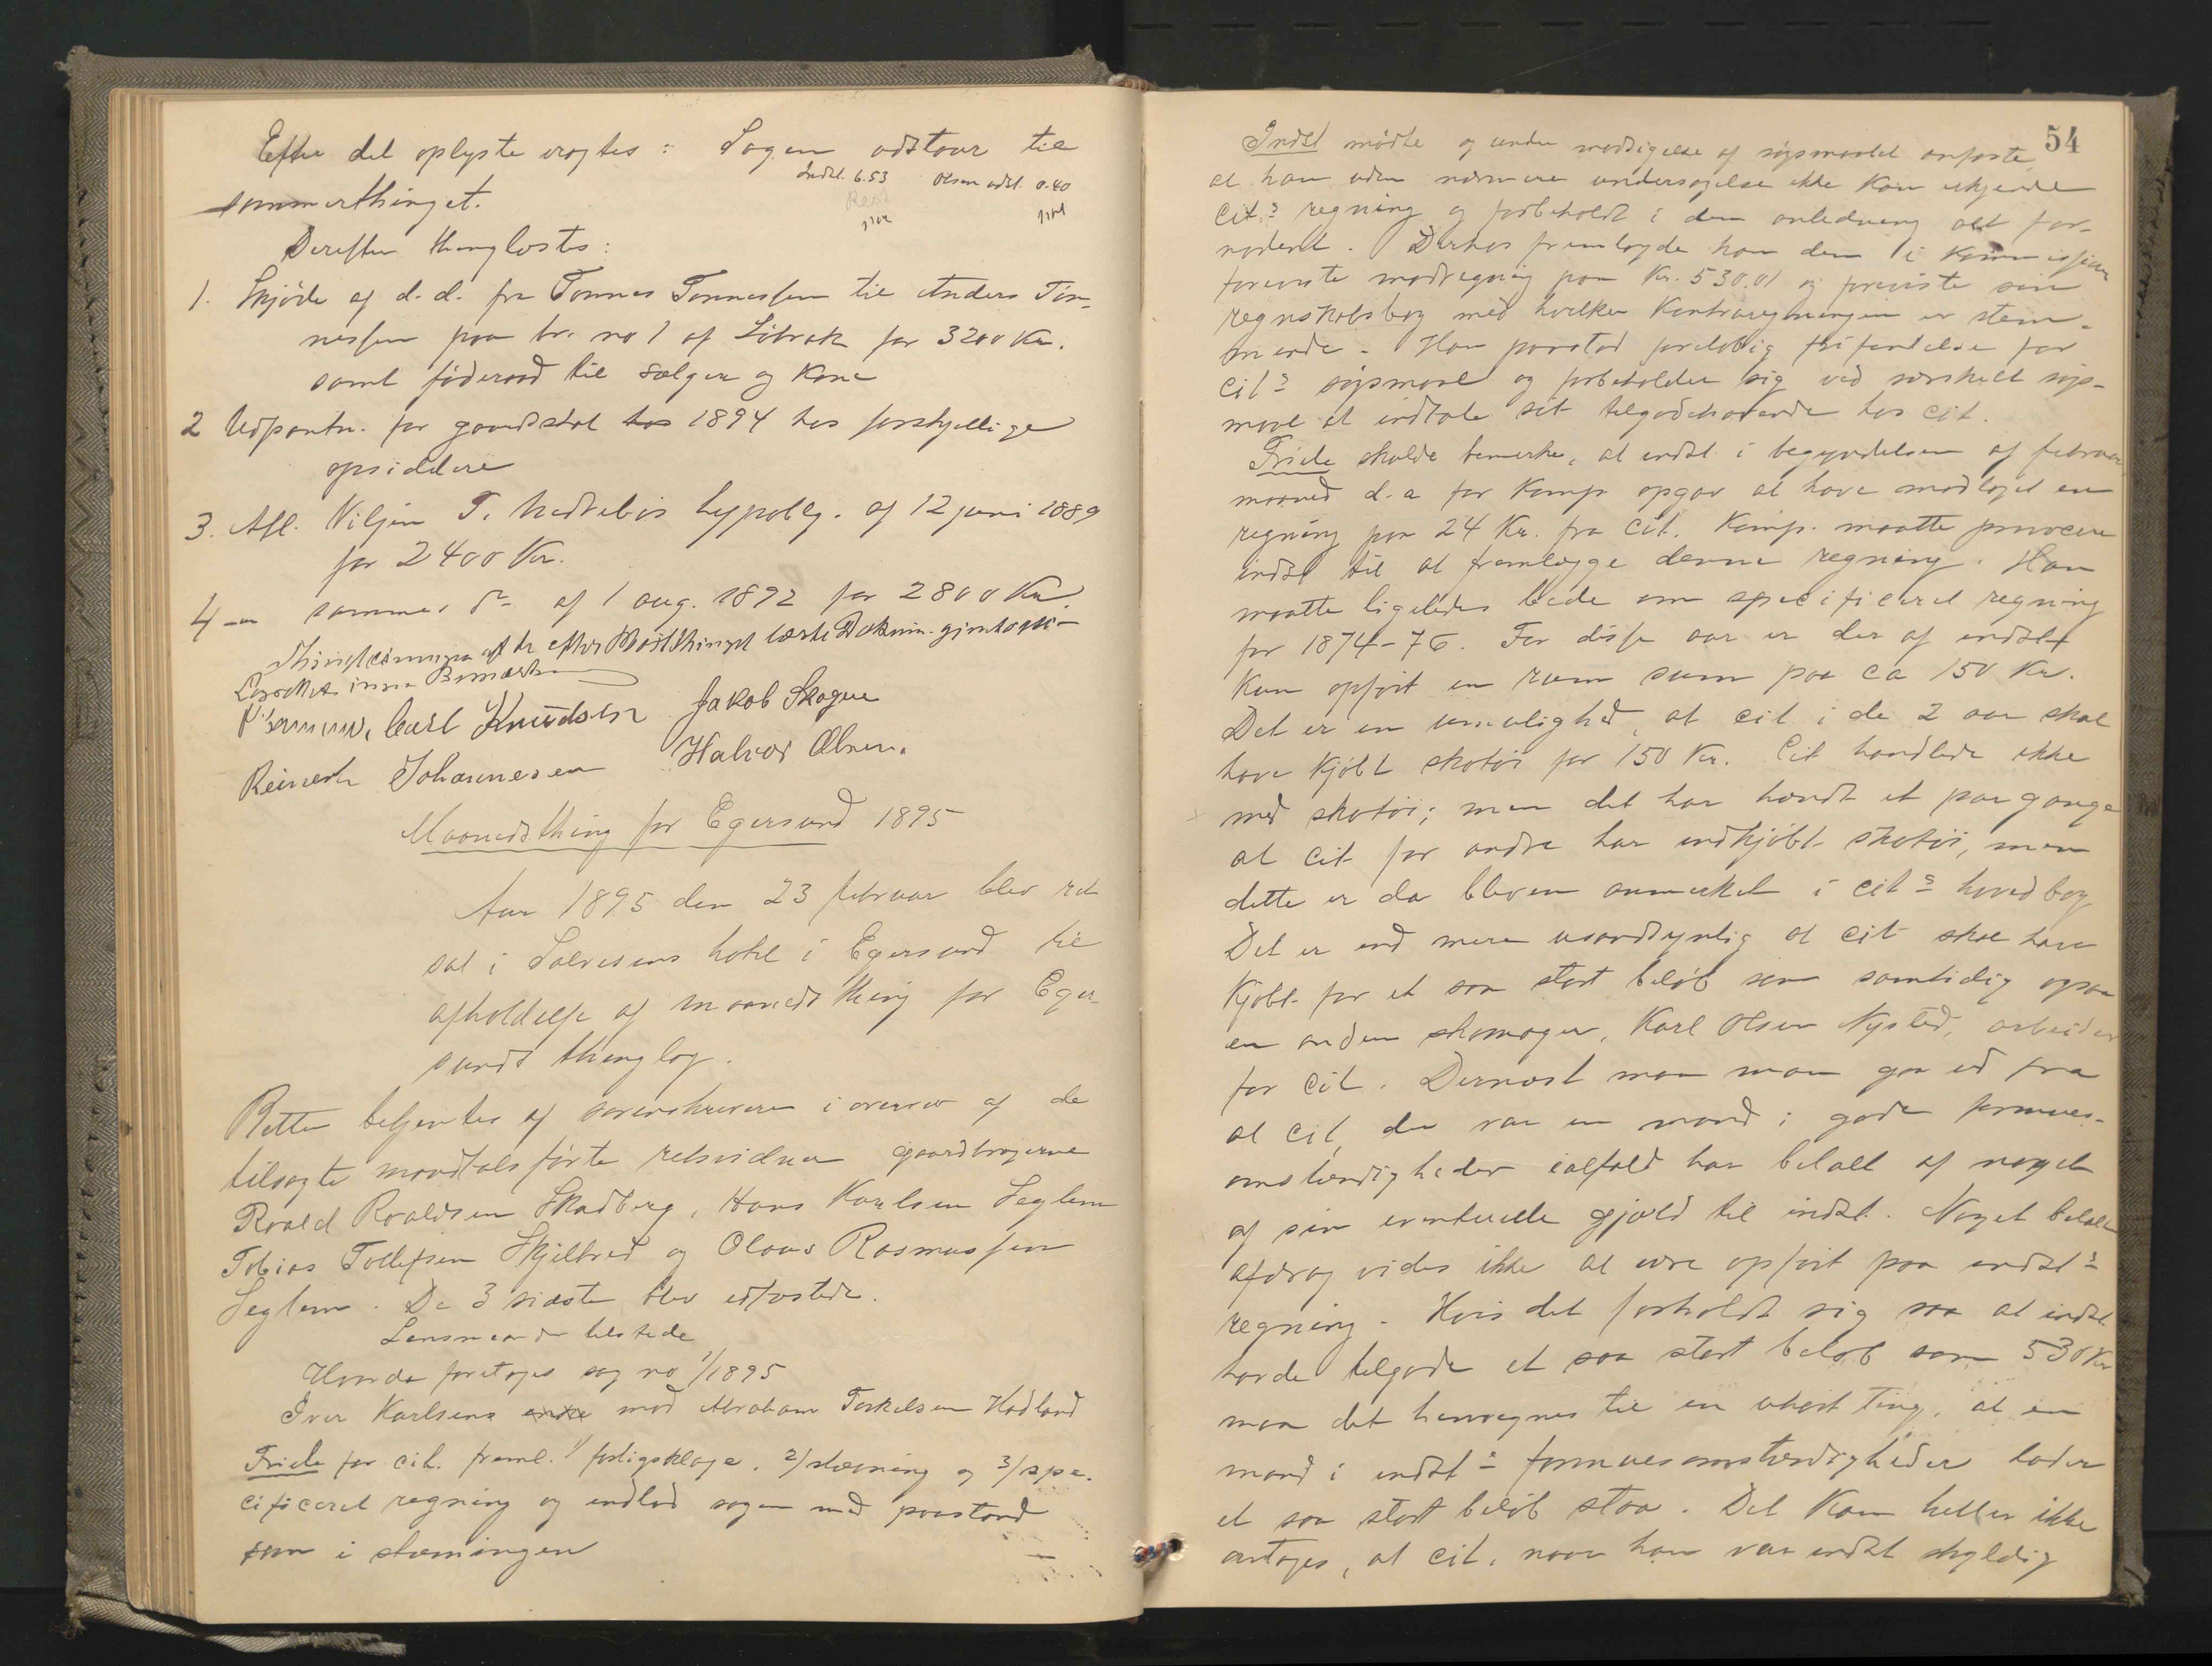 Efter det oplyste vragtes: Sagen udstaar til
Indst. 6.53 Olsen udst. 0.40
sommerthinget.
Derefter thinglæstes:
1. Skjöde af d. d. fra Tønnes Tønnessen til Anders Tøn-
nessen paa br. no 1 af Librak for 3200 Kr.
samt föderaad til sælger og Kone
2 Udpantn. for grundskat hos 1894 hos forskjellige
opsiddere
3. Afl. Viljen T. hypoblg. af 12 juni 1889
for 2400 Kr.
4 – sammes do af 1 aug. 1892 for 2800 Kr.
af de efter Høstthinget læste Dokum.
Carl Knudsen Jakob Skogen
Reinert Johannesen Halvor Olsen.
Maanedsthing for Egersund 1895
Aar 1895 den 23 februar blev ret
sat i Salvesens hotel i Egersund til
afholdelse af maanedsthing for Eger-
sunds thinglag.
Retten betjentes af sorenskriveren i overvær af de
tilsagte mandtalsførte retsvidner gaardbrugerne
Roald Roaldsen Skadberg, Hans Karlsen Seglem
Tobias Tollefsen Skjelbred og Olaus Rasmussen
Seglem. De 3 sidste blev edfæstede.
Lensmanden tilstede
Hvorda foretoges sag no 1/1895
Iver Karlsens mod Abraham Torkelsen Hadland
Friele for cit. freml. 1/ forligsklage, 2/ stævning og 3/ spe-
cificeret regning og indlod sagen med paastand
som i stævningen
54
Indst mødte og under modsigelse af søgsmaalet anførte,
at han uden nærmere undersøgelse ikke kan erkjende
Cits regning og forbeholdt i den anledning alt for-
nødent. Derhos fremlagde han den i Kommissionen
foreviste modregning paa Kr. 530.01 og foreviste sin
regnskabsbog med hvilken Kontraregningen er stem-
mende. Han paastod foreløbig frifindelse for
Cits søgsmaal og forbeholder sig ved særskilt søgs-
maal at indtale sit tilgodehavende hos Cit.
Friele skulde bemerke, at indst i begyndelsen af februar
maaned d. a for Komp. opgav at have modtaget en
regning paa 24 Kr. fra Cit. Komp. maatte provocere
indst til at fremlægge denne regning. Han
maatte ligeledes bede om specificeret regning
for 1874-76. For disse aar er der af indst
Kun opført en rund sum paa ca 150 Kr.
Det er en umulighed, at cit i de 2 aar skal
have Kjöbt skotöi for 150 Kr. Cit handlede ikke
med skotöi; men det har hændt et par gange
at cit for andre har indkjöbt skotöi, men
dette er da bleven anmerket i cits hovedbog
Det er end mere usandsynlig at cit skal have
Kjöbt for et saa stort belöb som samtidig ogsaa
en anden skomager, Karl Olsen Nysted, arbeider
for cit. Dernæst maa man gaa ud fra
at cit, der var en mand i gode formues-
omstændigheder ialfald har betalt af noget
af sin eventuelle gjæld til indst. Noget betalt
afdrag vides ikke at være opført paa indsts
regning. Hvis det forholdt sig saa at indst
havde tilgode et saa stort beløb som 530 Kr
maa det henregnes til en uhørt ting, at en
mand i indsts formuesomstændigheder lader
et saa stort beløb staa. Det Kan heller ikke
antages, at cit, naar han var indst skyldig